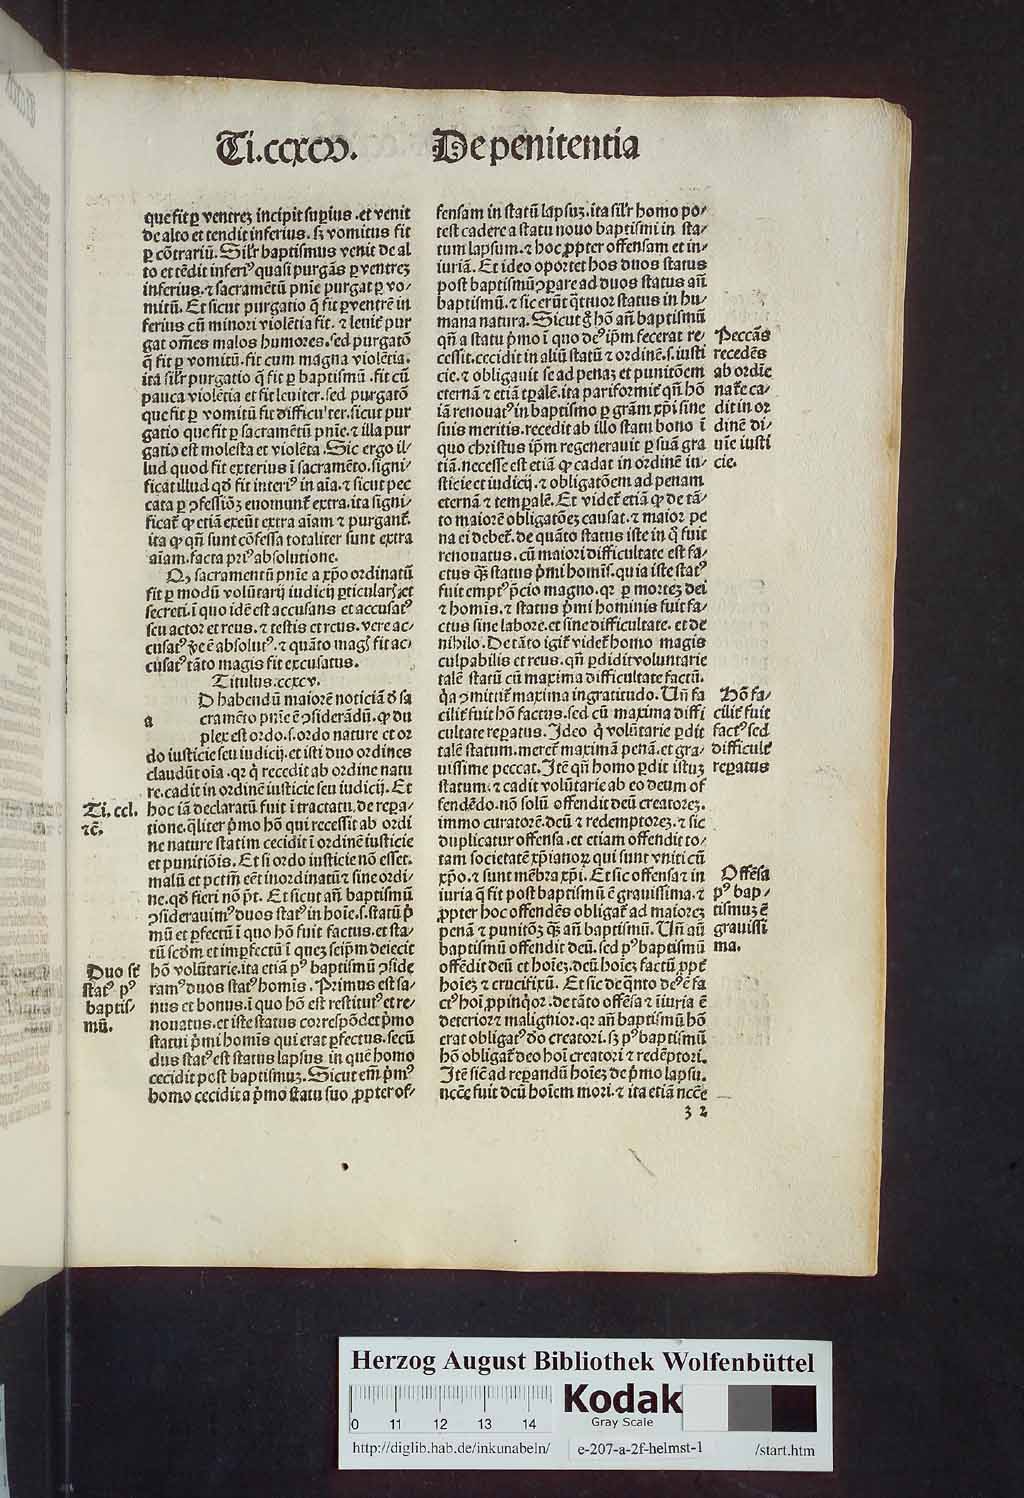 Ti.ccxcv. De penitentia
que fit ꝑ ventreȝ incipit suꝑius .et venit
de alto et tendit inferius. sȝ vomitus fit
ꝑ cõtrariũ. Silr baptismus venit de al
to et tẽdit inferiꝰ quasi purgãs ꝑ ventreȝ
inferius. ⁊ sacramẽtũ pnĩe purgat ꝑ vo-
mitũ. Et sicut purgatio q̃ fit ꝑ ventrẽ in
ferius cũ minori violẽtia fit. ⁊ leuiť pur
gat om̃es malos humores. sed purgatõ
q̃ fit ꝑ vomitũ. fit cum magna violẽtia.
ita silr purgatio q̃ fit ꝑ baptismũ .fit cũ
pauca violẽtia et fit leuiter. sed purgatõ
que fit ꝑ vomitũ fit difficulter. sicut pur
gatio que fit ꝑ sacramẽtũ pnĩe. ⁊ illa pur
gatio est molesta et violẽta. Sic ergo il-
lud quod fit exterius ĩ sacramẽto. signi-
ficat illud qđ fit interiꝰ in aĩa. ⁊ sicut pec
cata ꝑ ꝯfessiõȝ euomunť extra. ita signi-
ficať ꝙ etiã exeũt extra aĩam ⁊ purganť.
ita ꝙ qñ sunt cõfessa totaliter sunt extra
aĩam. facta priꝰ absolutione.
Qȝ sacramentũ pnĩe a xp̃o ordinatũ
fit ꝑ modũ volũtarij iudicij ꝑticularȝ et
secreti. ĩ quo idẽ est accusans et accusatꝰ
seu actor et reus. ⁊ testis et reus. vere ac-
cusatꝰ ẽ absolutꝰ. ⁊ quãto magȝ fit ac-
cusatꝰ tãto magis fit excusatus.
Titulus.ccxcv.
a
D habendũ maiorẽ noticiã đ sa
cramẽto pnĩe ẽ ꝯsiderãdũ. ꝙ du
plex est ordo. s. ordo nature et or
do iusticie seu iudicij. et isti duo ordines
claudũt oĩa. qr q̃ recedit ab ordine natu
re. cadit in ordinẽ iusticie seu iudicij. Et
Ti. ccl.
⁊c̃.
hoc iã declaratũ fuit ĩ tractatu. de repa-
tione. q̃liter p̃mo hõ qui recessit ab ordi
ne nature statim cecidit ĩ ordinẽ iusticie
et punitiõis. Et si ordo iusticie nõ esset.
malũ et pctm̃ eẽt inordinatũ ⁊ sine ordi-
ne. qđ fieri nõ p̃t. Et sicut añ baptismũ
ꝯsiderauimꝰ duos statꝰ in hoĩe. s. statũ p̃
mũ et ꝑfectũ ĩ quo hõ fuit factus. et sta-
tũ scđm et imꝑfectũ ĩ queȝ seip̃m deiecit
Duo sť
statꝰ pꝰ
baptis-
mũ.
hõ volũtarie. ita etiã pꝰ baptismũ ꝯside
ramꝰ duos statꝰ hominis. Primus est sa-
nus et bonus. ĩ quo hõ est restitutꝰ et re-
nouatus. et iste status correspõdet p̃mo
statui p̃mi hominis qui erat ꝑfectus. secũ
dus statꝰ est status lapsus in quẽ homo
cecidit post baptismuȝ. Sicut em̃ p̃mꝰ
homo cecidit a p̃mo statu suo ꝓpter of-
fensam in statũ lapsuȝ. ita silr homo po-
test cadere a statu nouo baptismi in sta-
tum lapsum. ⁊ hoc ꝓpter offensam et in-
iuriã. Et ideo oportet hos duos status
post baptismũ ꝯparare ad duos status añ
baptismũ. ⁊ sic erũt q̃ttuor status in hu-
mana natura. Sicut g̊ hõ añ baptismũ
qñ a statu p̃mo ĩ quo deꝰ ip̃m fecerat re-
cessit. cecidit in aliũ statũ ⁊ ordinẽ. s. iusti
cie. ⁊ obligauit se ad penaȝ et punitõem
eternã ⁊ etiã tꝑalẽ. ita pariformiť qñ hõ
iã renouatꝰ in baptismo ꝑ grãm xp̃i sine
suis meritis. recedit ab illo statu bono ĩ
quo christus ip̃m regenerauit ꝑ suã gra
tiã. necesse est etiã ꝙ cadat in ordinẽ iu-
sticie et iudicij. ⁊ obligatõem ad penam
eternã ⁊ temꝑalẽ. Et videť etiã ꝙ de tã-
to maiorẽ obligatõeȝ causat. ⁊ maior pe
na ei debeť. de quãto status iste in q̃ fuit
renouatus. cũ maiori difficultate est fa-
ctus q̃ȝ status p̃mi homĩs. quia iste statꝰ
fuit emptꝰ p̃cio magno. qr ꝑ morteȝ dei
⁊ homĩs. ⁊ status p̃mi hominis fuit fa-
ctus sine labore. et sine difficultate. et de
nihilo. De tãto igiť videť homo magis
culpabilis et reus. qñ ꝑdidit voluntarie
talẽ statũ cũ maxima difficultate factũ.
q̃a ꝯmittiť maxima ingratitudo. Uñ fa
ciliť fuit hõ factus. sed cũ maxima diffi
cultate reꝑatus. Ideo q̃ volũtarie ꝑdit
talẽ statum. mereť maximã penã. et gra-
uissime peccat. Itẽ qñ homo ꝑdit istuȝ
statum. ⁊ cadit volũtarie ab eo deum of
fendẽdo. nõ solũ offendit deũ creatoreȝ.
immo curatorẽ. deũ ⁊ redemptoreȝ. ⁊ sic
duplicatur offensa. et etiam offendit to-
tam societatẽ xp̃ianoꝝ qui sunt vniti cũ
xp̃o. ⁊ sunt mẽbra xp̃i. Et sic offensa ⁊ in
iuria q̃ fit post baptismũ ẽ grauissima. ⁊
ꝓpter hoc offendẽs obligať ad maioreȝ
penã ⁊ punitõȝ q̃ȝ añ baptismũ. Uñ añ
baptismũ offendit deũ. sed pꝰ baptismũ
offẽdit deũ et hoĩeȝ. deũ hoĩeȝ factũ ꝓpť
hoĩeȝ ⁊ crucifixũ. Et sic de q̃nto deꝰ ẽ fa
ctꝰ hoĩ ꝓpinq̃or. de tãto offẽsa ⁊ ĩiuria ẽ
deterior ⁊ malignior. qr añ baptismũ hõ
erat obligatꝰ đo creatori. sȝ pꝰ baptismũ
hõ obligať deo hoĩ creatori ⁊ redẽptori.
Itẽ sic̃ ad reꝑandũ hoĩeȝ de p̃mo lapsu.
nc̃c̃e fuit deũ hoĩem mori. ⁊ ita etiã nc̃c̃e
Peccãs
recedẽs
ab ordĩe
naťe ca-
dit in or
dinẽ di-
uĩe iusti
cie.
Hõ fa-
ciliť fuit
factꝰ sed
difficulť
reꝑatus
Offẽsa
pꝰ bap-
tismuȝ ẽ
grauissi
ma.
3 2
Herzog August Bibliothek Wolfenbüttel
0 11 12 13 14
Kodak
Gray Scale
http://diglib.hab.de/inkunabeln/ e-207-a-2f-helmst-1 /start.htm